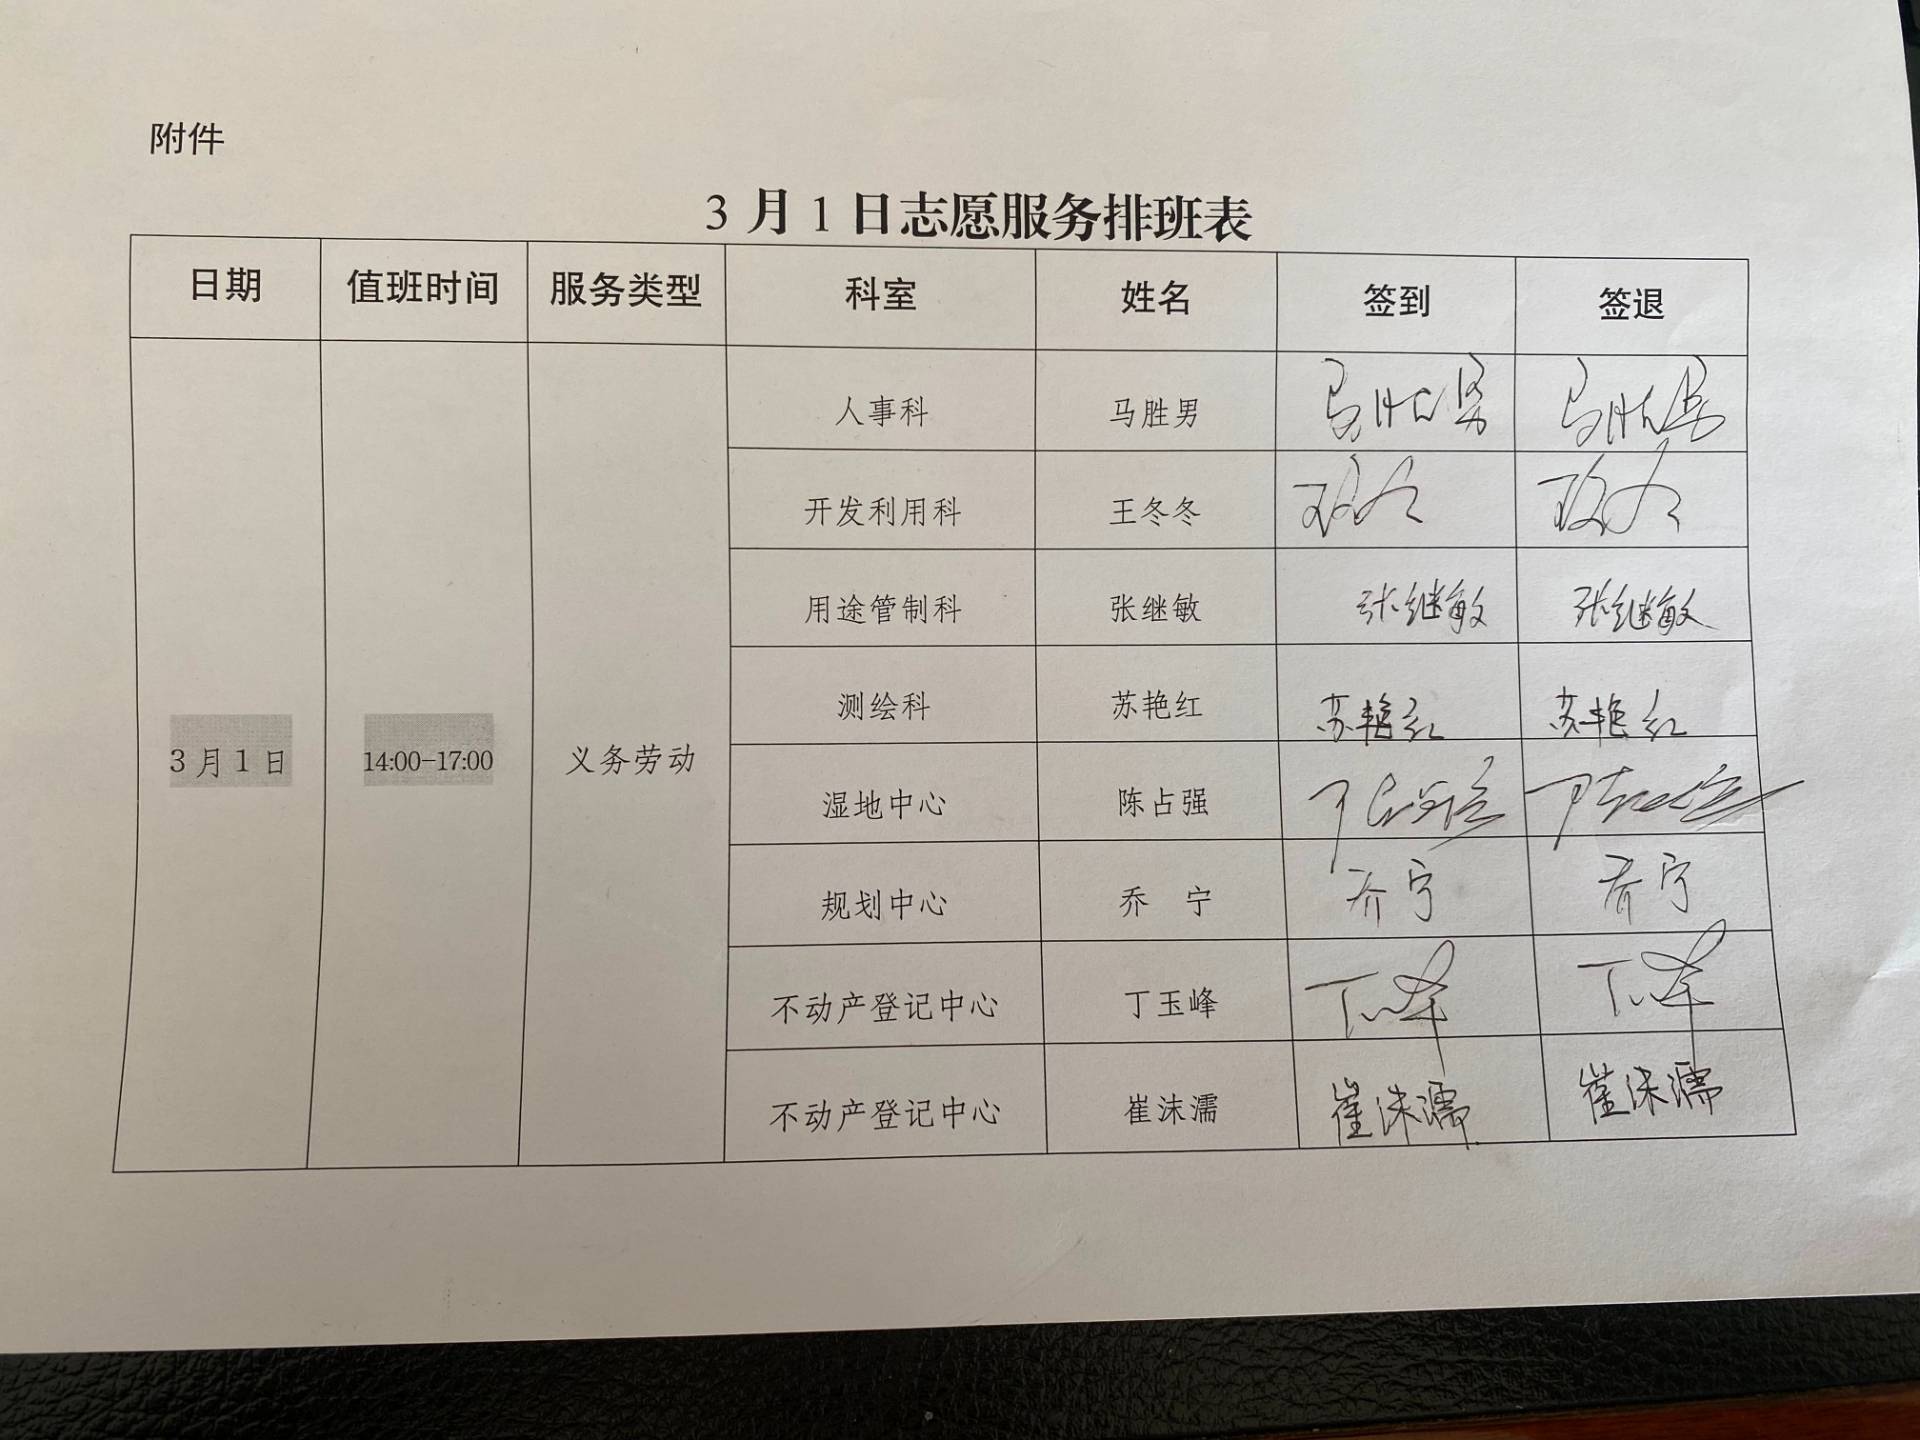 附件
3月1日志愿服务排班表
日期 值班时间 服务类型 科室 姓名 签到 签退
人事科 马胜男 马胜男 马胜男
开发利用科 王冬冬
用途管制科 张继敏 张继敏 张继敏
测绘科 苏艳红 苏艳红 苏艳红
3月1日 14:00-17:00 义务劳动
湿地中心 陈占强
规划中心 乔 宁 乔宁 乔宁
不动产登记中心 丁玉峰
不动产登记中心 崔沫濡 崔沫濡 崔沫濡